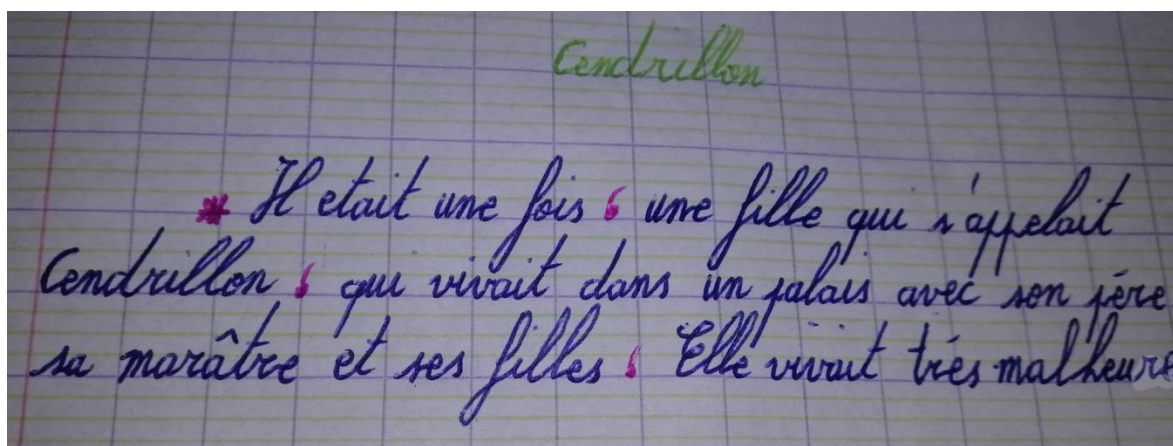 Cendrillon
* Il etait une fois , une fille qui s'appelait
Cendrillon , qui vivait dans un palais avec son père
sa marâtre et ses filles . Elle vivait très malheure